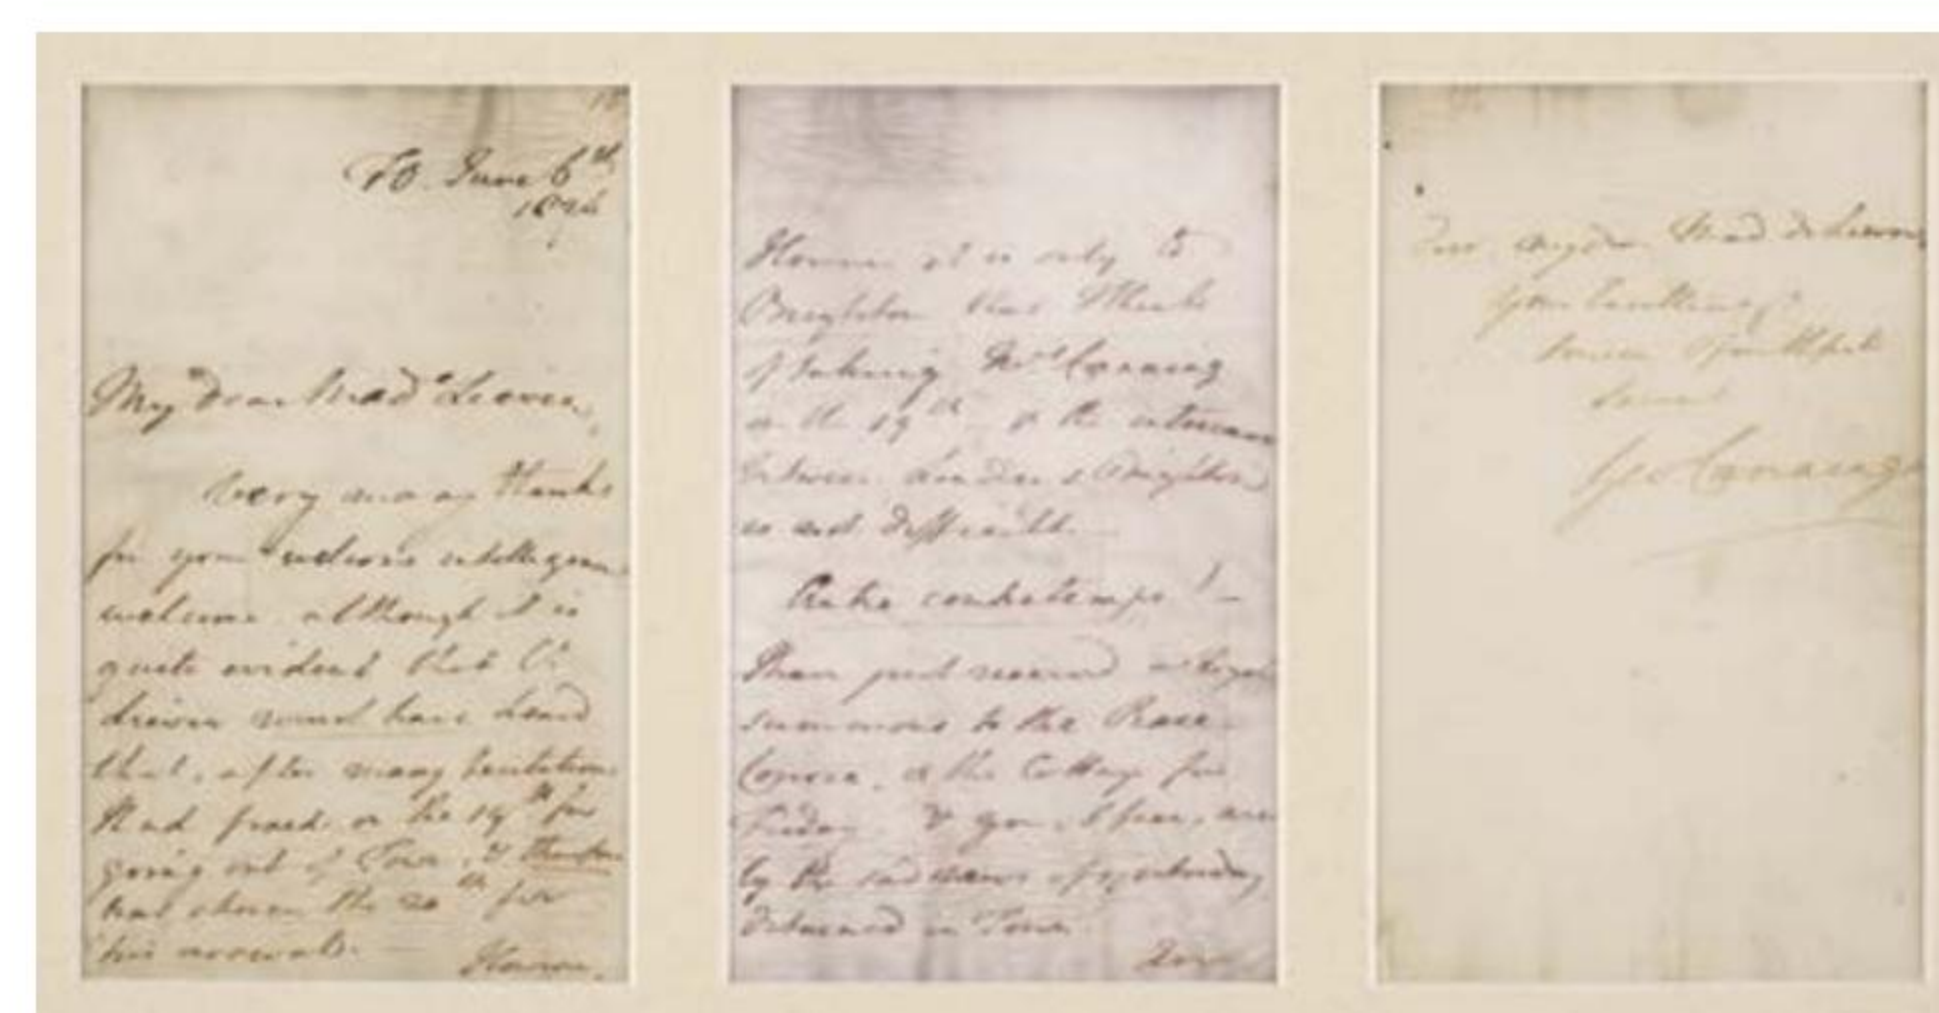 FO. June 6th
182
My dear Madᵉ Lieven,
Very many thanks
for your welcome intelligence
welcome, although it is
quite evident that
must have heard
that, after many hesitations
I had fixed on the 19th for
going out of Town, & therefore
has chosen the 20th for
his arrival. —
However,
However it is only to
Brighton that I think
of taking Mrs Canning
on the 19th & the
between London & Brighton
is not difficult. —
Autre contretemps! —
I have just received a Royal
summons to the Race
Course, & the Cottage for
Friday. & you, I fear, are
by the sad news of yesterday
detained in Town.
Ever
Ever my dear Mad de Lieven
Your Excellency's
faithful
Servant
Geo Canning